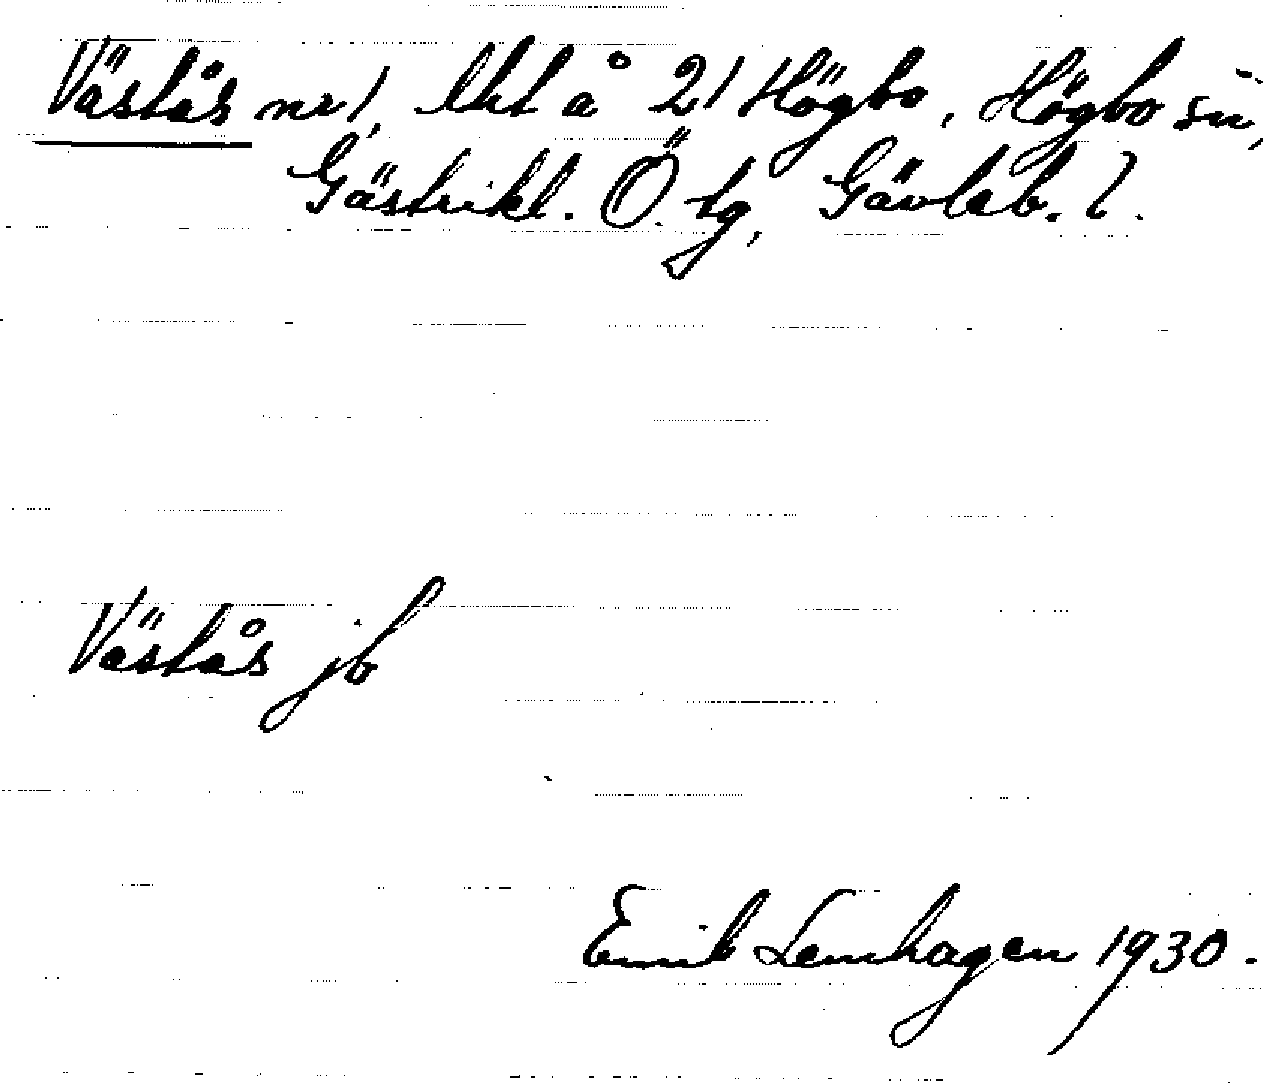 Västås nr 1, lht å 21 Högbo, Högbo sn,
Gästrikl. Ö. tg, Gävleb. l.
Västås jb
Emil Lemhagen 1930.